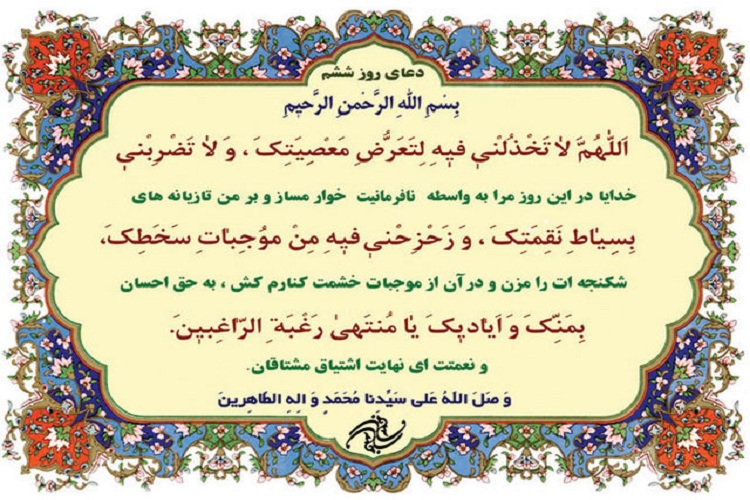 دعای روز ششم
بِسْمِ اللهِ الرَّحْمنِ الرَّحیمِ
اَللّٰهُمَّ لاٰ تَخْذُلْنی فیهِ لِتَعَرُّضِ مَعْصِیَتِکَ ، وَ لاٰ تَضْرِبْنی
خدایا در این روز مرا به واسطه نافرمانیت خوار مساز و بر من تازیانه های
بِسِیٰاطِ نَقِمَتِکَ ، وَ زَحْزِحْنی فیهِ مِنْ مُوجِبٰاتِ سَخَطِکَ،
شکنجه ات را مزن و در آن از موجبات خشمت کنارم کش ، به حق احسان
بِمَنِّکَ وَ اَیٰادیکَ یٰا مُنتَهیٰ رَغْبَةِ الرّٰاغِبینَ.
و نعمتت ای نهایت اشتیاق مشتاقان.
وَ صَلَ اللهُ عَلی سَیِّدنا مُحَمَدٍ وَ الِهِ الطاهِرینَ